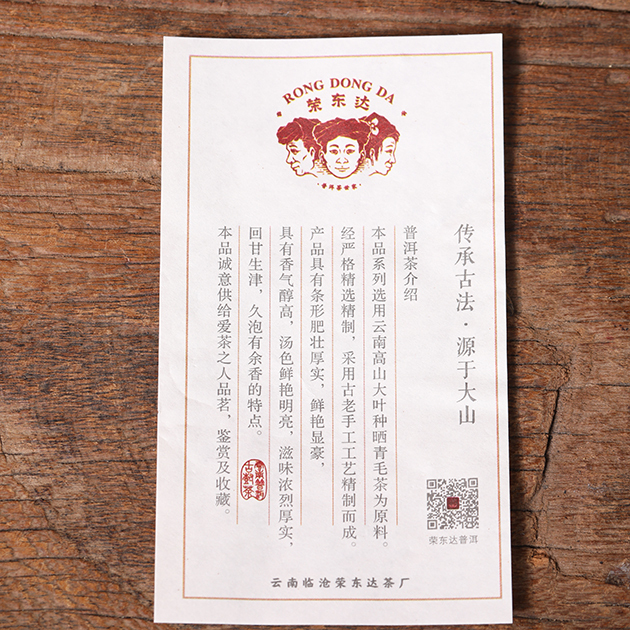 RONG DONG DA
荣东达
·普洱茶世家·
传承古法·源于大山
普洱茶介绍
本品系列选用云南高山大叶种晒青毛茶为原料。
经严格精选精制，采用古老手工工艺精制而成。
产品具有条形肥壮厚实，鲜艳显豪，
具有香气醇高，汤色鲜艳明亮，滋味浓烈厚实，
回甘生津，久泡有余香的特点。
本品诚意供给爱茶之人品茗，鉴赏及收藏。
荣东达普洱
云南临沧荣东达茶厂